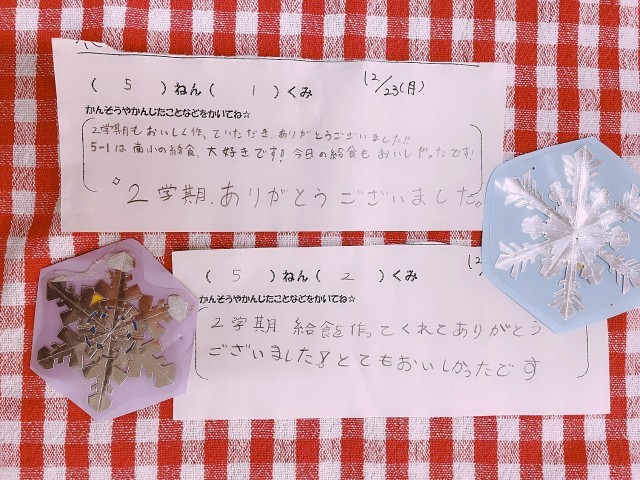 ( 5 )ねん( 1 )くみ 12/23(月)
かんそうやかんじたことなどをかいてね☆
2学期もおいしく作っていただき、ありがとうございました!!
5-1は南小の給食、大好きです!今日の給食もおいしかったです!
2学期、ありがとうございました。
( 5 )ねん( 2 )くみ (12
かんそうやかんじたことなどをかいてね☆
2学期 給食を作ってくれてありがとう
ございました!とてもおいしかったです